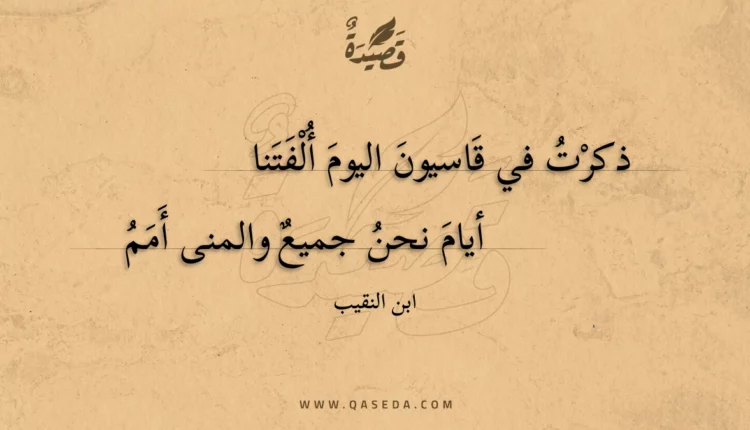 قَصِيْدَةٌ
ذكرْتُ في قَاسيونَ اليومَ أُلْفَتَنا
أيامَ نحنُ جميعٌ والمنى أَمَمُ
ابن النقيب
WWW.QASEDA.COM